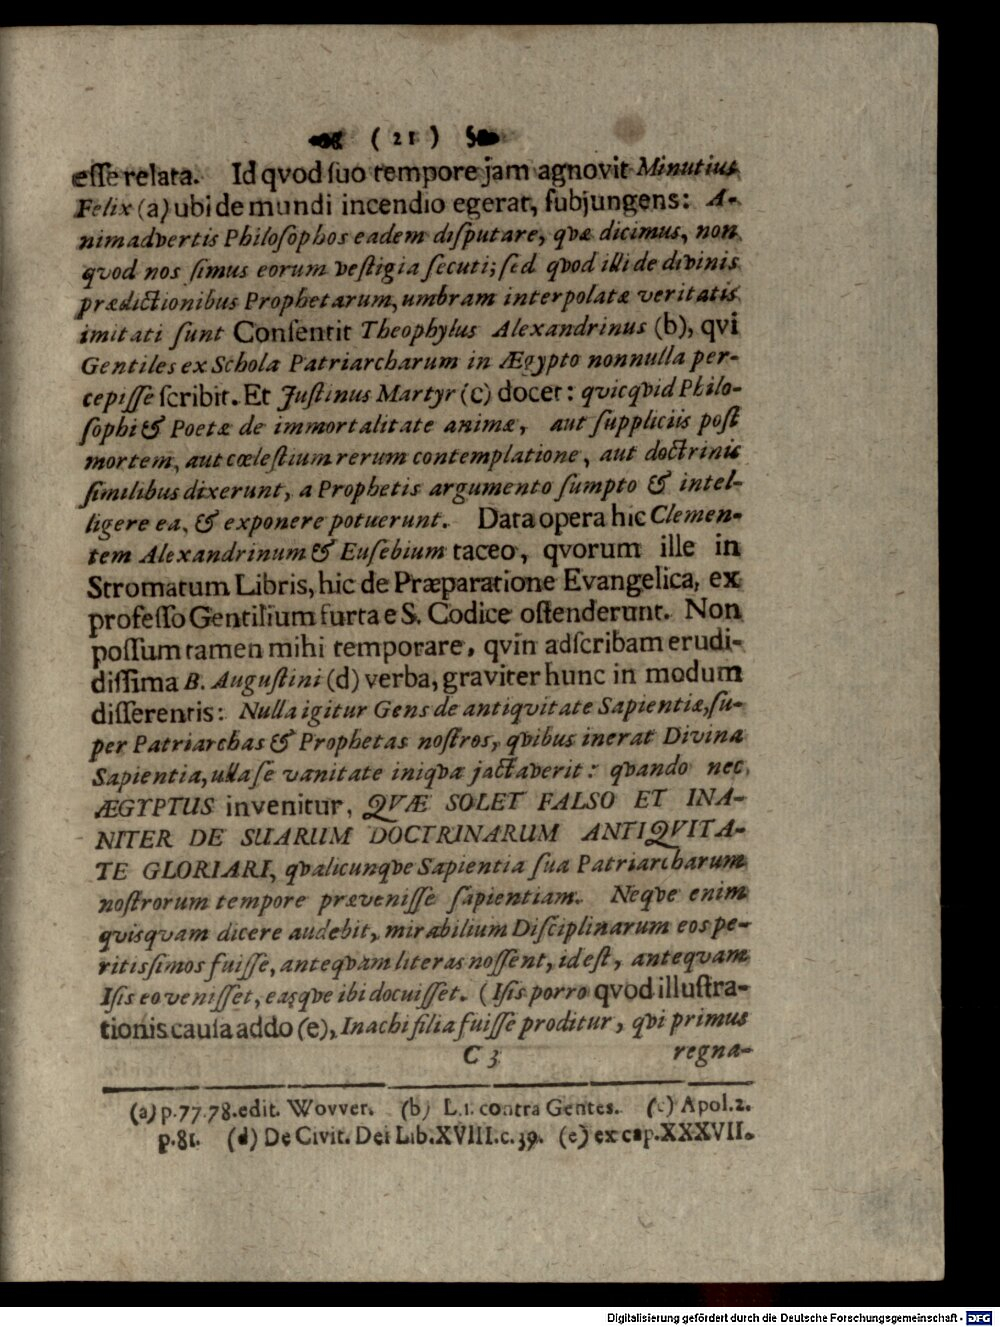 ( 21 )
esse relata. Id qvod suo tempore jam agnovit Minutius
Felix (a) ubi de mundi incendio egerat, subjungens: A-
nimadvertis Philosophos eadem disputare, qvæ dicimus, non
quod nos simus eorum vestigia secuti; sed qvod illi de divinis
prædictionibus Prophetarum, umbram interpolatæ veritatis
imitati sunt Consentit Theophylus Alexandrinus (b), qvi
Gentiles ex Schola Patriarcharum in Ægypto nonnulla per-
cepisse scribit. Et Justinus Martyr (c) docet: qvicqvid Philo-
sophi & Poetæ de immortalitate animæ, aut suppliciis post
mortem, aut cœlestium rerum contemplatione, aut doctrinis
similibus dixerunt, a Prophetis argumento sumpto & intel-
ligere ea, & exponere potuerunt. Data opera hic Clemen-
tem Alexandrinum & Eusebium taceo, qvorum ille in
Stromatum Libris, hic de Præparatione Evangelica, ex
professo Gentilium furta e S. Codice ostenderunt. Non
possum tamen mihi temporare, qvin adscribam erudi-
dissima B. Augustini (d) verba, graviter hunc in modum
disserentis: Nulla igitur Gens de antiqvitate Sapientiæ, su-
per Patriarchas & Prophetas nostros, qvibus inerat Divina
Sapientia, ulla se vanitate iniqva jactaverit: qvando nec
ÆGYPTUS invenitur, QVÆ SOLET FALSO ET INA-
NITER DE SUARUM DOCTRINARUM ANTIQVITA-
TE GLORIARI, qvalicunqve Sapientia sua Patriarcharum
nostrorum tempore prævenisse sapientiam. Neqve enim
quisquam dicere audebit, mirabilium Disciplinarum eos pe-
ritissimos fuisse, anteqvam literas nossent, id est, antequam
Isis eo venisset, easqve ibi docuisset. (Isis porro qvod illustra-
tionis causa addo (e), Inachi filia fuisse proditur, qvi primus
C 3 regna-
(a) p. 77. 78. edit. Wovver. (b) L. 1. contra Gentes. (c) Apol. 2.
p. 81. (d) De Civit. Dei Lib. XVIII. c. 39. (e) ex cap. XXXVII.
Digitalisierung gefördert durch die Deutsche Forschungsgemeinschaft - DFG